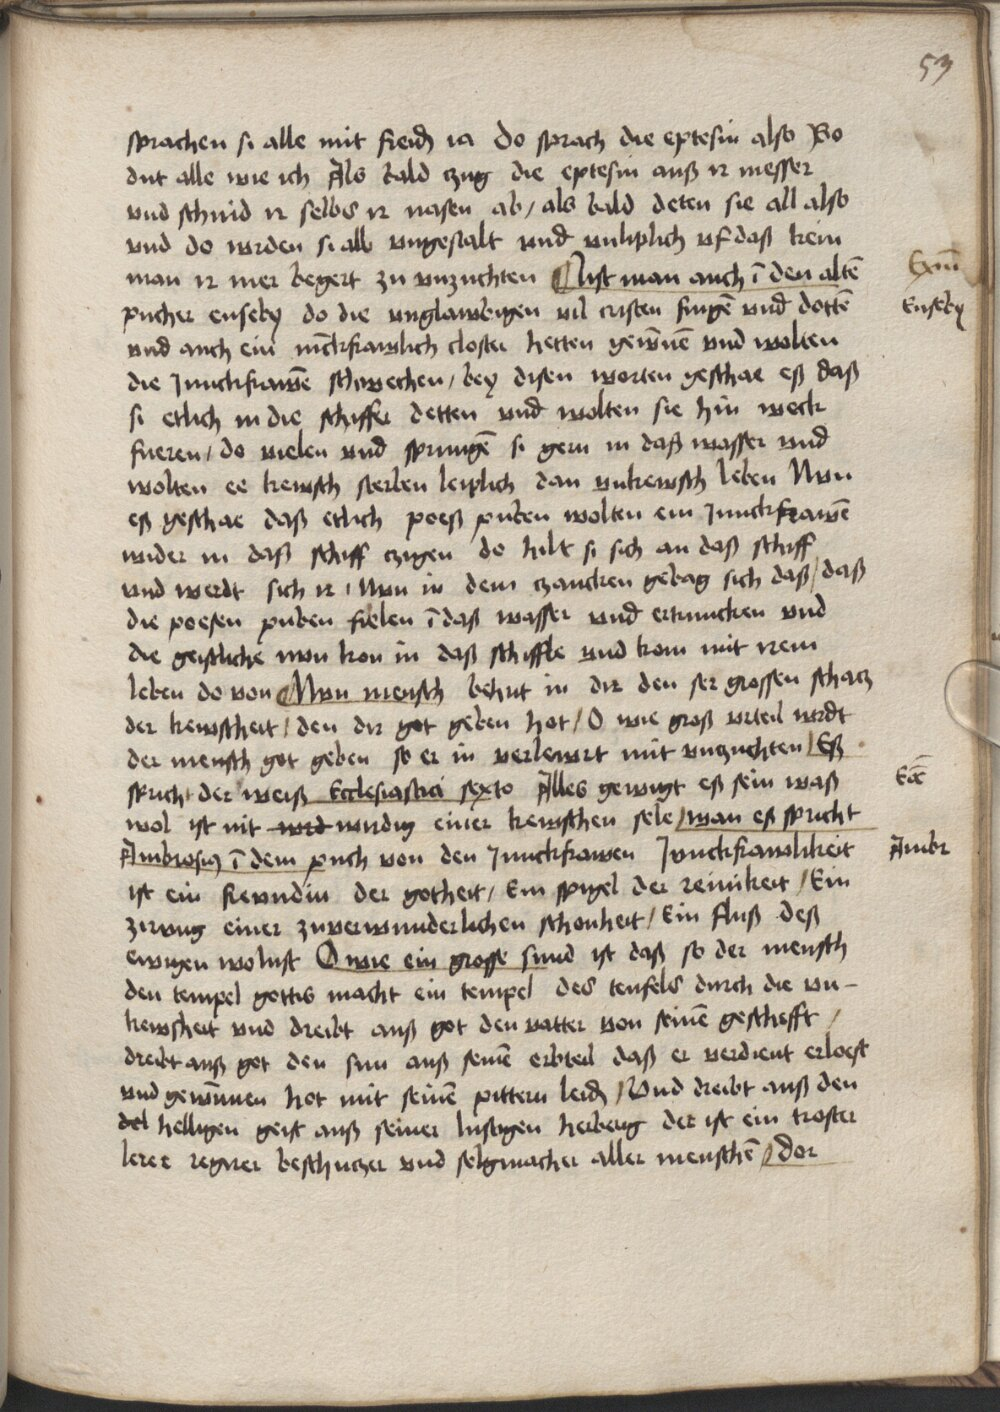 53
sprachen si alle mit freid ia Do sprach die eptesin also So
dut alle wie ich Als bald czug die eptesin auß ir messer
vnd schnid ir selbs ir nasen ab / als bald deten sie all also
vnd do wrden si all vngestalt vnd vnliplich vf daß kein
man ir mer begert zu vnzuchten List man auch ī den altē
Exm̄
pucher euseby do die vnglawbigen vil cristen fingē vnd dottē
Euseby
vnd auch ein iūckfrawlich closter hetten gewūnē vnd wolten
die Junckfrawē schwechen / bey disen worten geschae eß daß
si etlich in die schiffer detten vnd wolten sie hin weck
fueren / do vielen vnd sprungē si gern in daß wasser vnd
wolten ee kewsch sterben leiplich dan vnkewsch leben Nvn
eß geschae daß etlich poeß puben wolten ein Junckfrawē
wider in daß schiff czigen do hilt si sich an daß schiff
vnd werdt sich ir / Nvn in dem czancken gebag sich daß / daß
die poesen puben fielen ī daß wasser vnd ertruncken vnd
die geistliche nvn kon in daß schiffle vnd kom mit irem
leben do von Nvn mensch behut in dir den ser grossen schacz
der kewscheit / den dir got geben hot / O wie groß vrteil wirdt
der mensch got geben so er in verlewrt mit vnzuchten / Eß
spricht der weiß Ecclesiastici sexto Alles gewigt eß sein waß
Ecc̄
wol ist nit wrd wirdig einer kewschen sele / wan es spricht
Ambrosiꝰ ī dem puch von den Junckfrawen Jvnckfrawlikeit
Ambr
ist ein frevndin der gotheit / Ein spigel der reinikeit / Ein
zirvng einer zuverwunderlichen schonheit / Ein fluß deß
ewigen wolust O wie ein grosse sund ist daß so der mensch
den tempel gottis macht ein tempel des teufels durch die vn-
kewsheit vnd dreibt auß got den vatter von seinē geschefft /
dreibt auß got den sun auß seinē erbteil daß er verdient erloest
vnd gewūnnen hot mit seinē pittern leid / Vnd dreibt auß den
del helligen geist auß seiner lustigen herberg der ist ein troster
lerer regirer beschuczer vnd seligmacher aller menschē / Dor